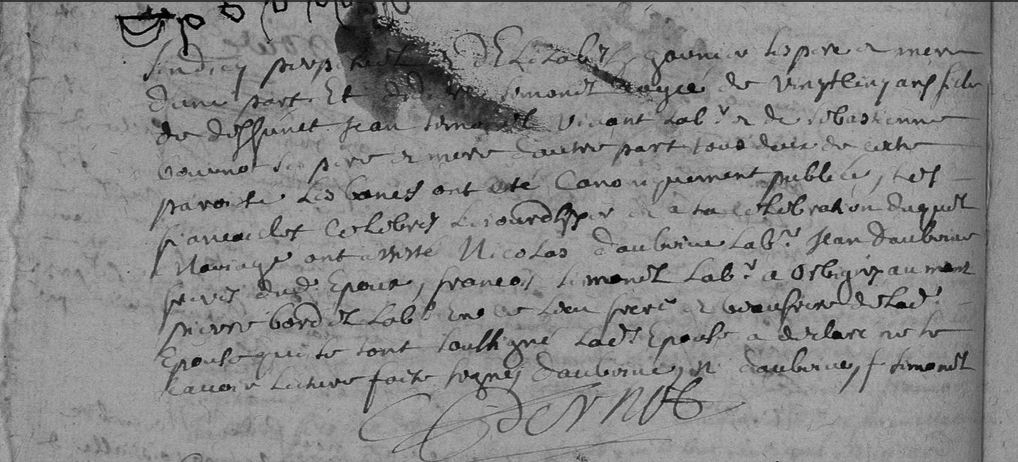 sindicq perpetuel & d'Elizabet garnier ses pere & mere
d'une part Et simonel agée de vingt cinq ans fille
de deffunct Jean simonel vivant Lab.r & de sebastienne
ses pere & mere d'autre part tous deux de cette
paroisse Les bans ont eté Canoniquement publiés, les
fiancailles Celebrés Le jourd'hyer & a la celebration duquel
Mariage ont assisté Nicolas daubrive Lab.r Jean daubrive
freres dud. Epoux, francois simonel Lab.r a Orbigny au mont
pierre Lab.r en ce Lieu frere & beaufrere de Lad.
Epouse qui se sont soussigné Lad. Epouse a declaré ne le
scavoir Lecture faite signes daubrive, N daubrive, f simonel